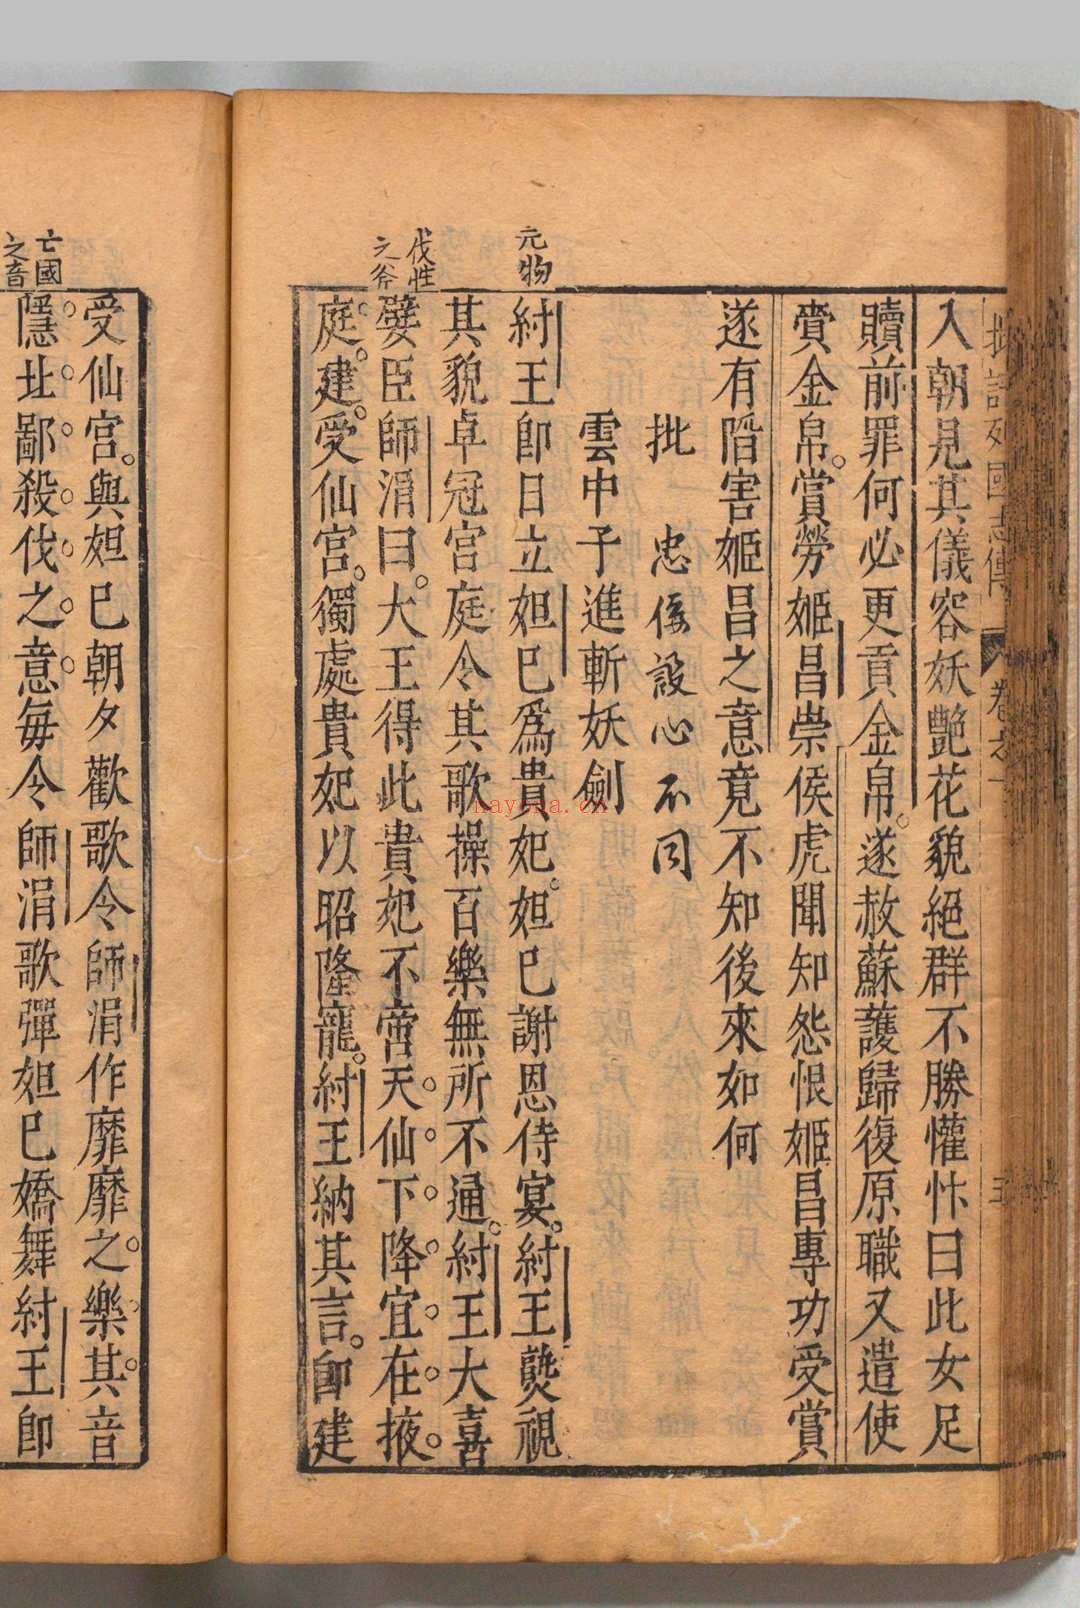 批評列國志傳 卷之一 三
入朝見其儀容妖艷花貌絕群不勝懽忭曰此女足
贖前罪何必更貢金帛遂赦蘇護歸復原職又遣使
賫金帛賞勞姬昌崇侯虎聞知怨恨姬昌專功受賞
遂有階害姬昌之意竟不知後來如何
批 忠佞設心不同
雲中子進斬妖劍
元物
紂王即日立妲己為貴妃妲己謝恩侍宴紂王熟視
其貌卓冠宮庭令其歌操百樂無所不通紂王大喜
伐性
之斧
嬖臣師涓曰大王得此貴妃不啻天仙下降宜在掖
庭建受仙宮獨處貴妃以昭隆寵紂王納其言即建
受仙宮與妲己朝夕歡歌令師涓作靡靡之樂其音
亡國
之音
隱北鄙殺伐之意每令師涓歌彈妲己嬌舞紂王即
nayona.cn